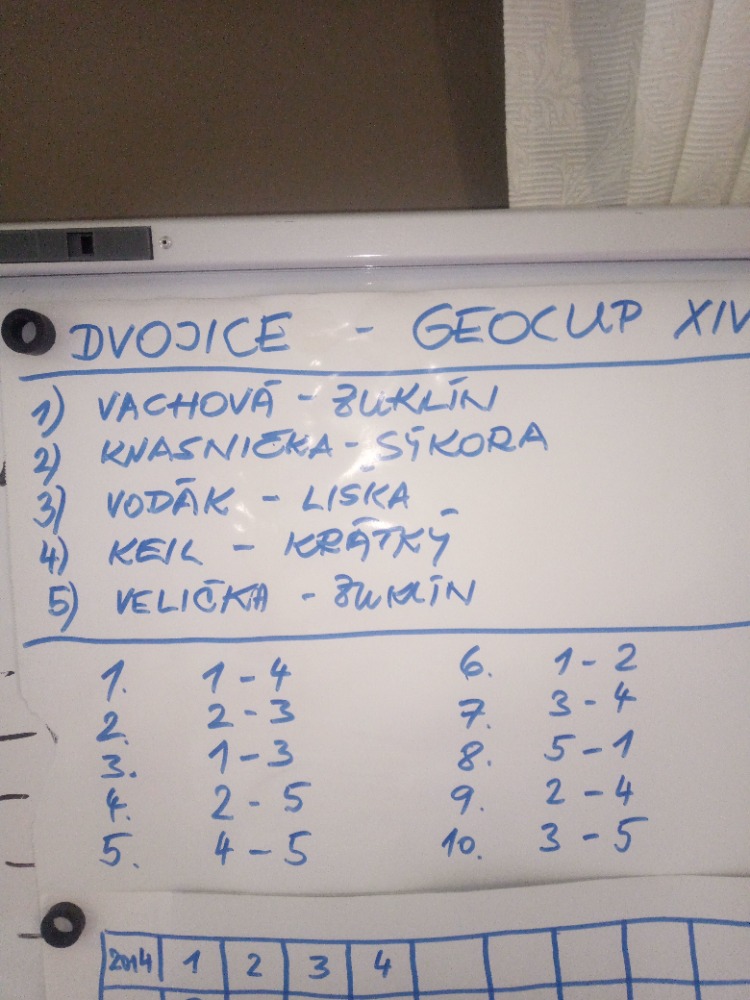 DVOJICE - GEOCUP XIV
1) VACHOVÁ - ŽUKLÍN
2) KNASNIČKA - SÝKORA
3) VODÁK - LIŠKA
4) KEIL - KRÁTKÝ
5) VELIČKA - ŽUKLÍN
1. 1 - 4 6. 1 - 2
2. 2 - 3 7. 3 - 4
3. 1 - 3 8. 5 - 1
4. 2 - 5 9. 2 - 4
5. 4 - 5 10. 3 - 5
2014 1 2 3 4